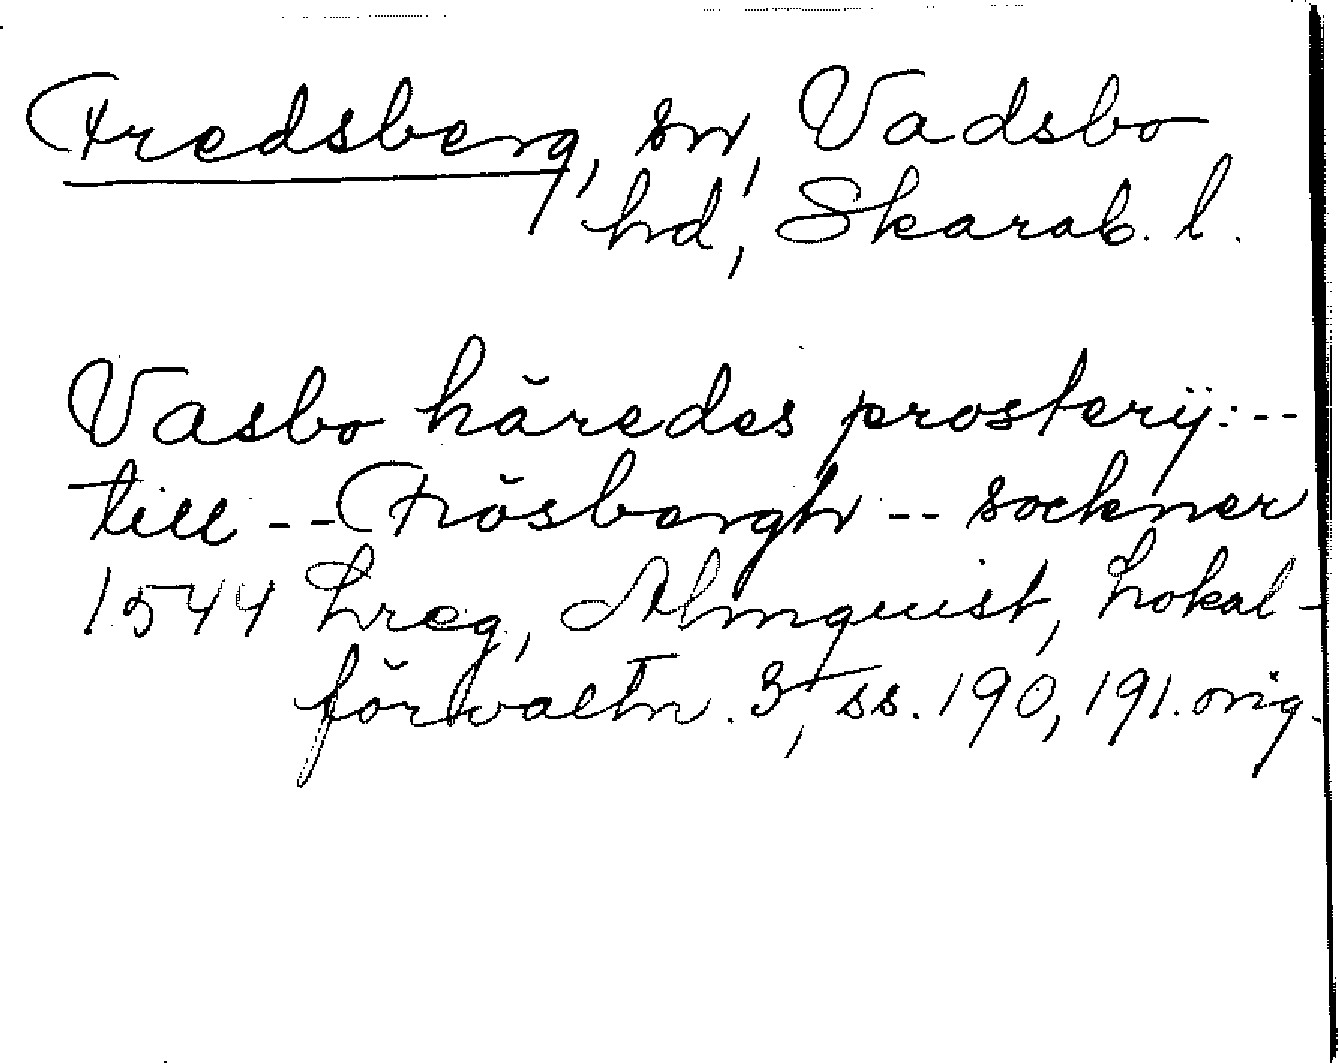 Fredsberg, sn, Vadsbo
hd, Skarab. l.
Vasbo häredes prosterÿ: --
till -- Frösbergh -- sockner
1544 Lreg, Almquist, Lokal-
förvaltn. 3, ss. 190, 191. orig.